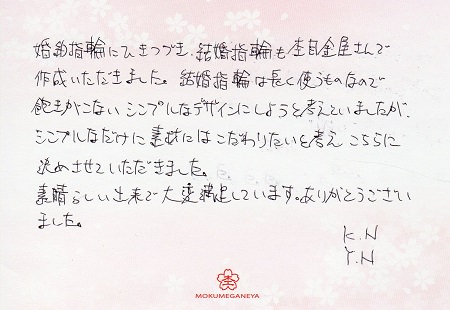 婚約指輪にひきつづき、結婚指輪も杢目金屋さんで
作成いただきました。結婚指輪は長く使うものなので
飽きがこないシンプルなデザインにしようと考えていましたが、
シンプルなだけに素材にはこだわりたいと考え こちらに
決めさせていただきました。
素晴らしい出来で大変満足しています。ありがとうござい
ました。
K.N
Y.N
MOKUMEGANEYA